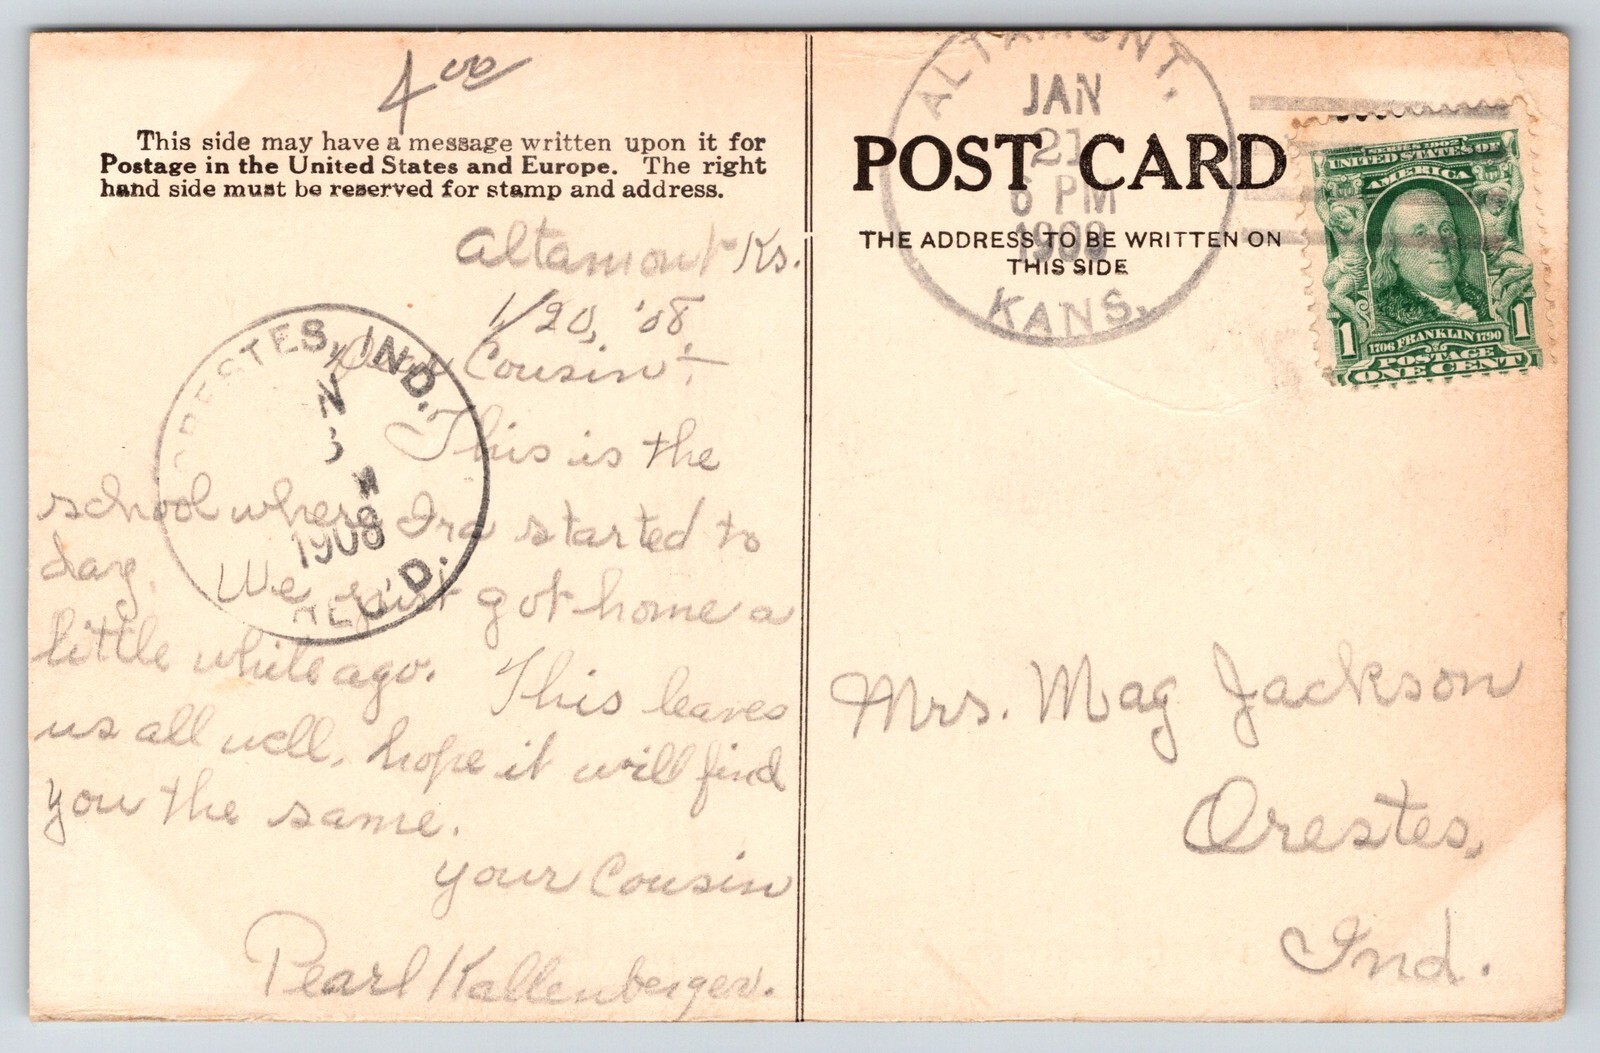 4.00
This side may have a message written upon it for
Postage in the United States and Europe. The right
hand side must be reserved for stamp and address.
Altamont Ks.
1/20, '08,
Dear Cousin:—
This is the
school where Ira started to
day. We just got home a
little while ago. This leaves
us all well, hope it will find
you the same.
Your Cousin
Pearl Kallenberger.
ORESTES, IND.
1908
REC'D.
ALTAMONT.
JAN
21
6 PM
KANS.
POST CARD
THE ADDRESS TO BE WRITTEN ON
THIS SIDE
SERIES 1902
UNITED STATES OF
AMERICA
1 1
1706 FRANKLIN 1790
POSTAGE
ONE CENT
Mrs. Mag Jackson
Orestes,
Ind.